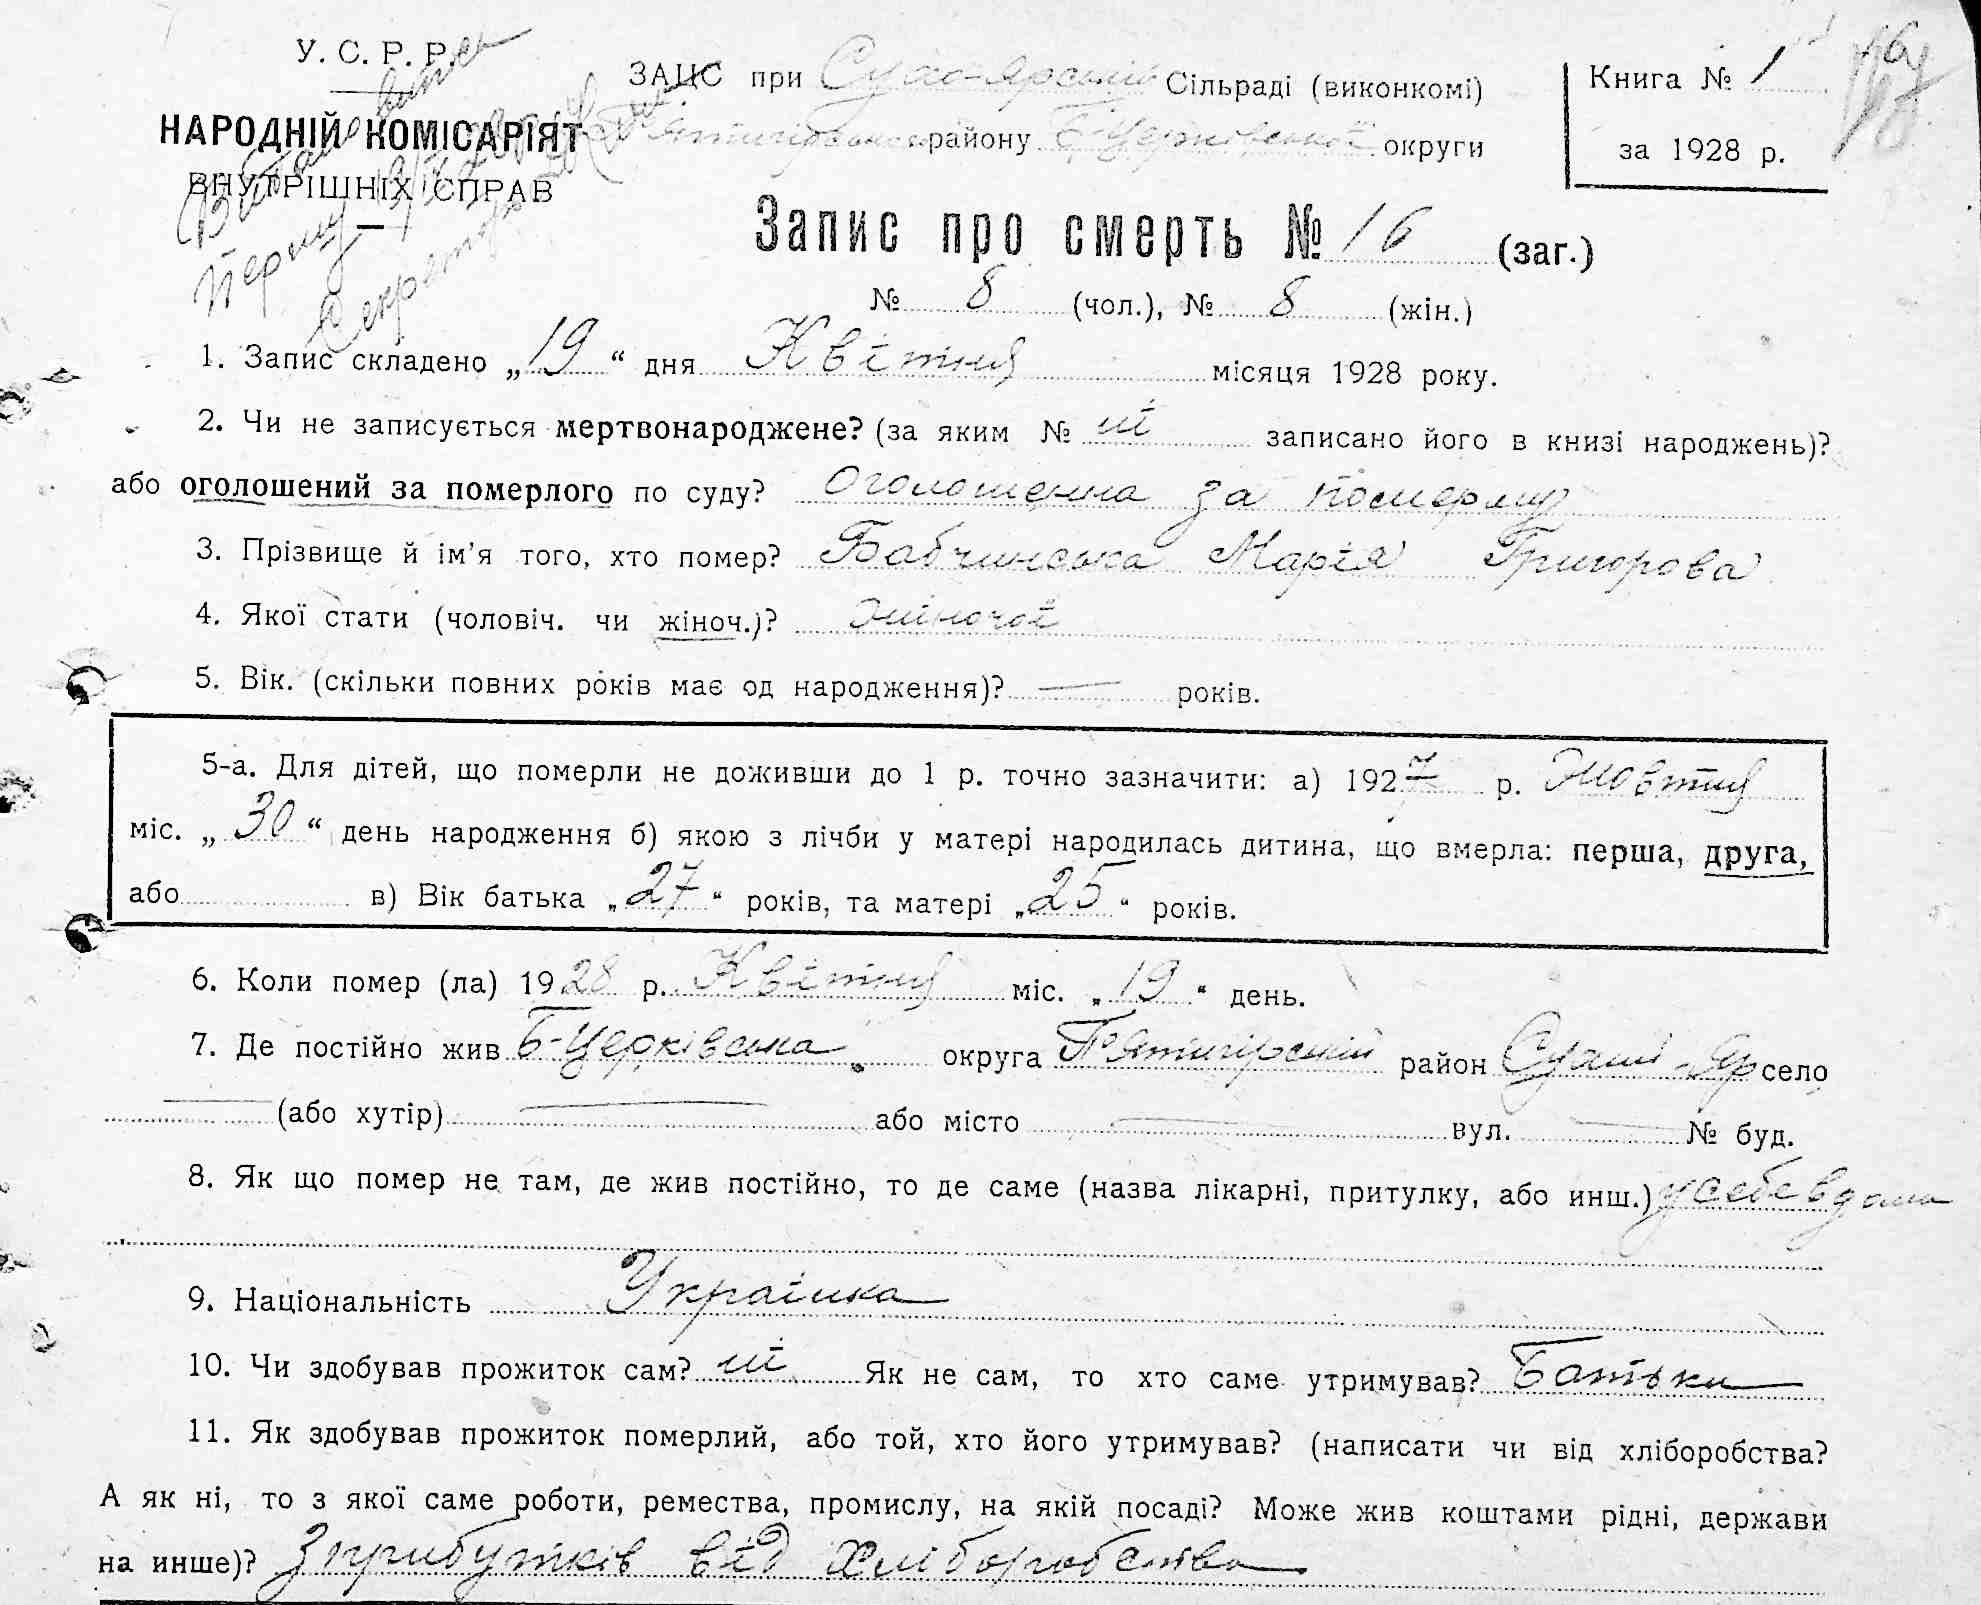 У. С. Р. Р.
НАРОДНІЙ КОМІСАРІЯТ
ВНУТРІШНІХ СПРАВ
Секретар
ЗАЦС при Сухо-Ярській Сільраді (виконкомі)
району Б-Церковської округи
Книга № 1
за 1928 р.
Запис про смерть № 16 (заг.)
№ 8 (чол.), № 8 (жін.)
1. Запис складено „19“ дня Квітня місяця 1928 року.
2. Чи не записується мертвонароджене? (за яким № ні записано його в книзі народжень)?
або оголошений за померлого по суду? оголошенна за померлу
3. Прізвище й ім'я того, хто помер? Бабчинська Марія Григорова
4. Якої стати (чоловіч. чи жіноч.)? жіночої
5. Вік. (скільки повних років має од народження)? — років.
5-а. Для дітей, що померли не доживши до 1 р. точно зазначити: а) 1927 р. Жовтня
міс. „30“ день народження б) якою з лічби у матері народилась дитина, що вмерла: перша, друга,
або в) Вік батька „27“ років, та матері „25“ років.
6. Коли помер (ла) 1928 р. Квітня міс. „19“ день.
7. Де постійно жив Б-Церківська округа П'ятигірський район Сухий-Яр село
— (або хутір) — або місто — вул. — № буд.
8. Як що помер не там, де жив постійно, то де саме (назва лікарні, притулку, або инш.) у себе вдома
9. Національність Українка
10. Чи здобував прожиток сам? ні Як не сам, то хто саме утримував? Батьки
11. Як здобував прожиток померлий, або той, хто його утримував? (написати чи від хліборобства?
А як ні, то з якої саме роботи, ремества, промислу, на якій посаді? Може жив коштами рідні, держави
на инше)? З прибутків від хліборобства